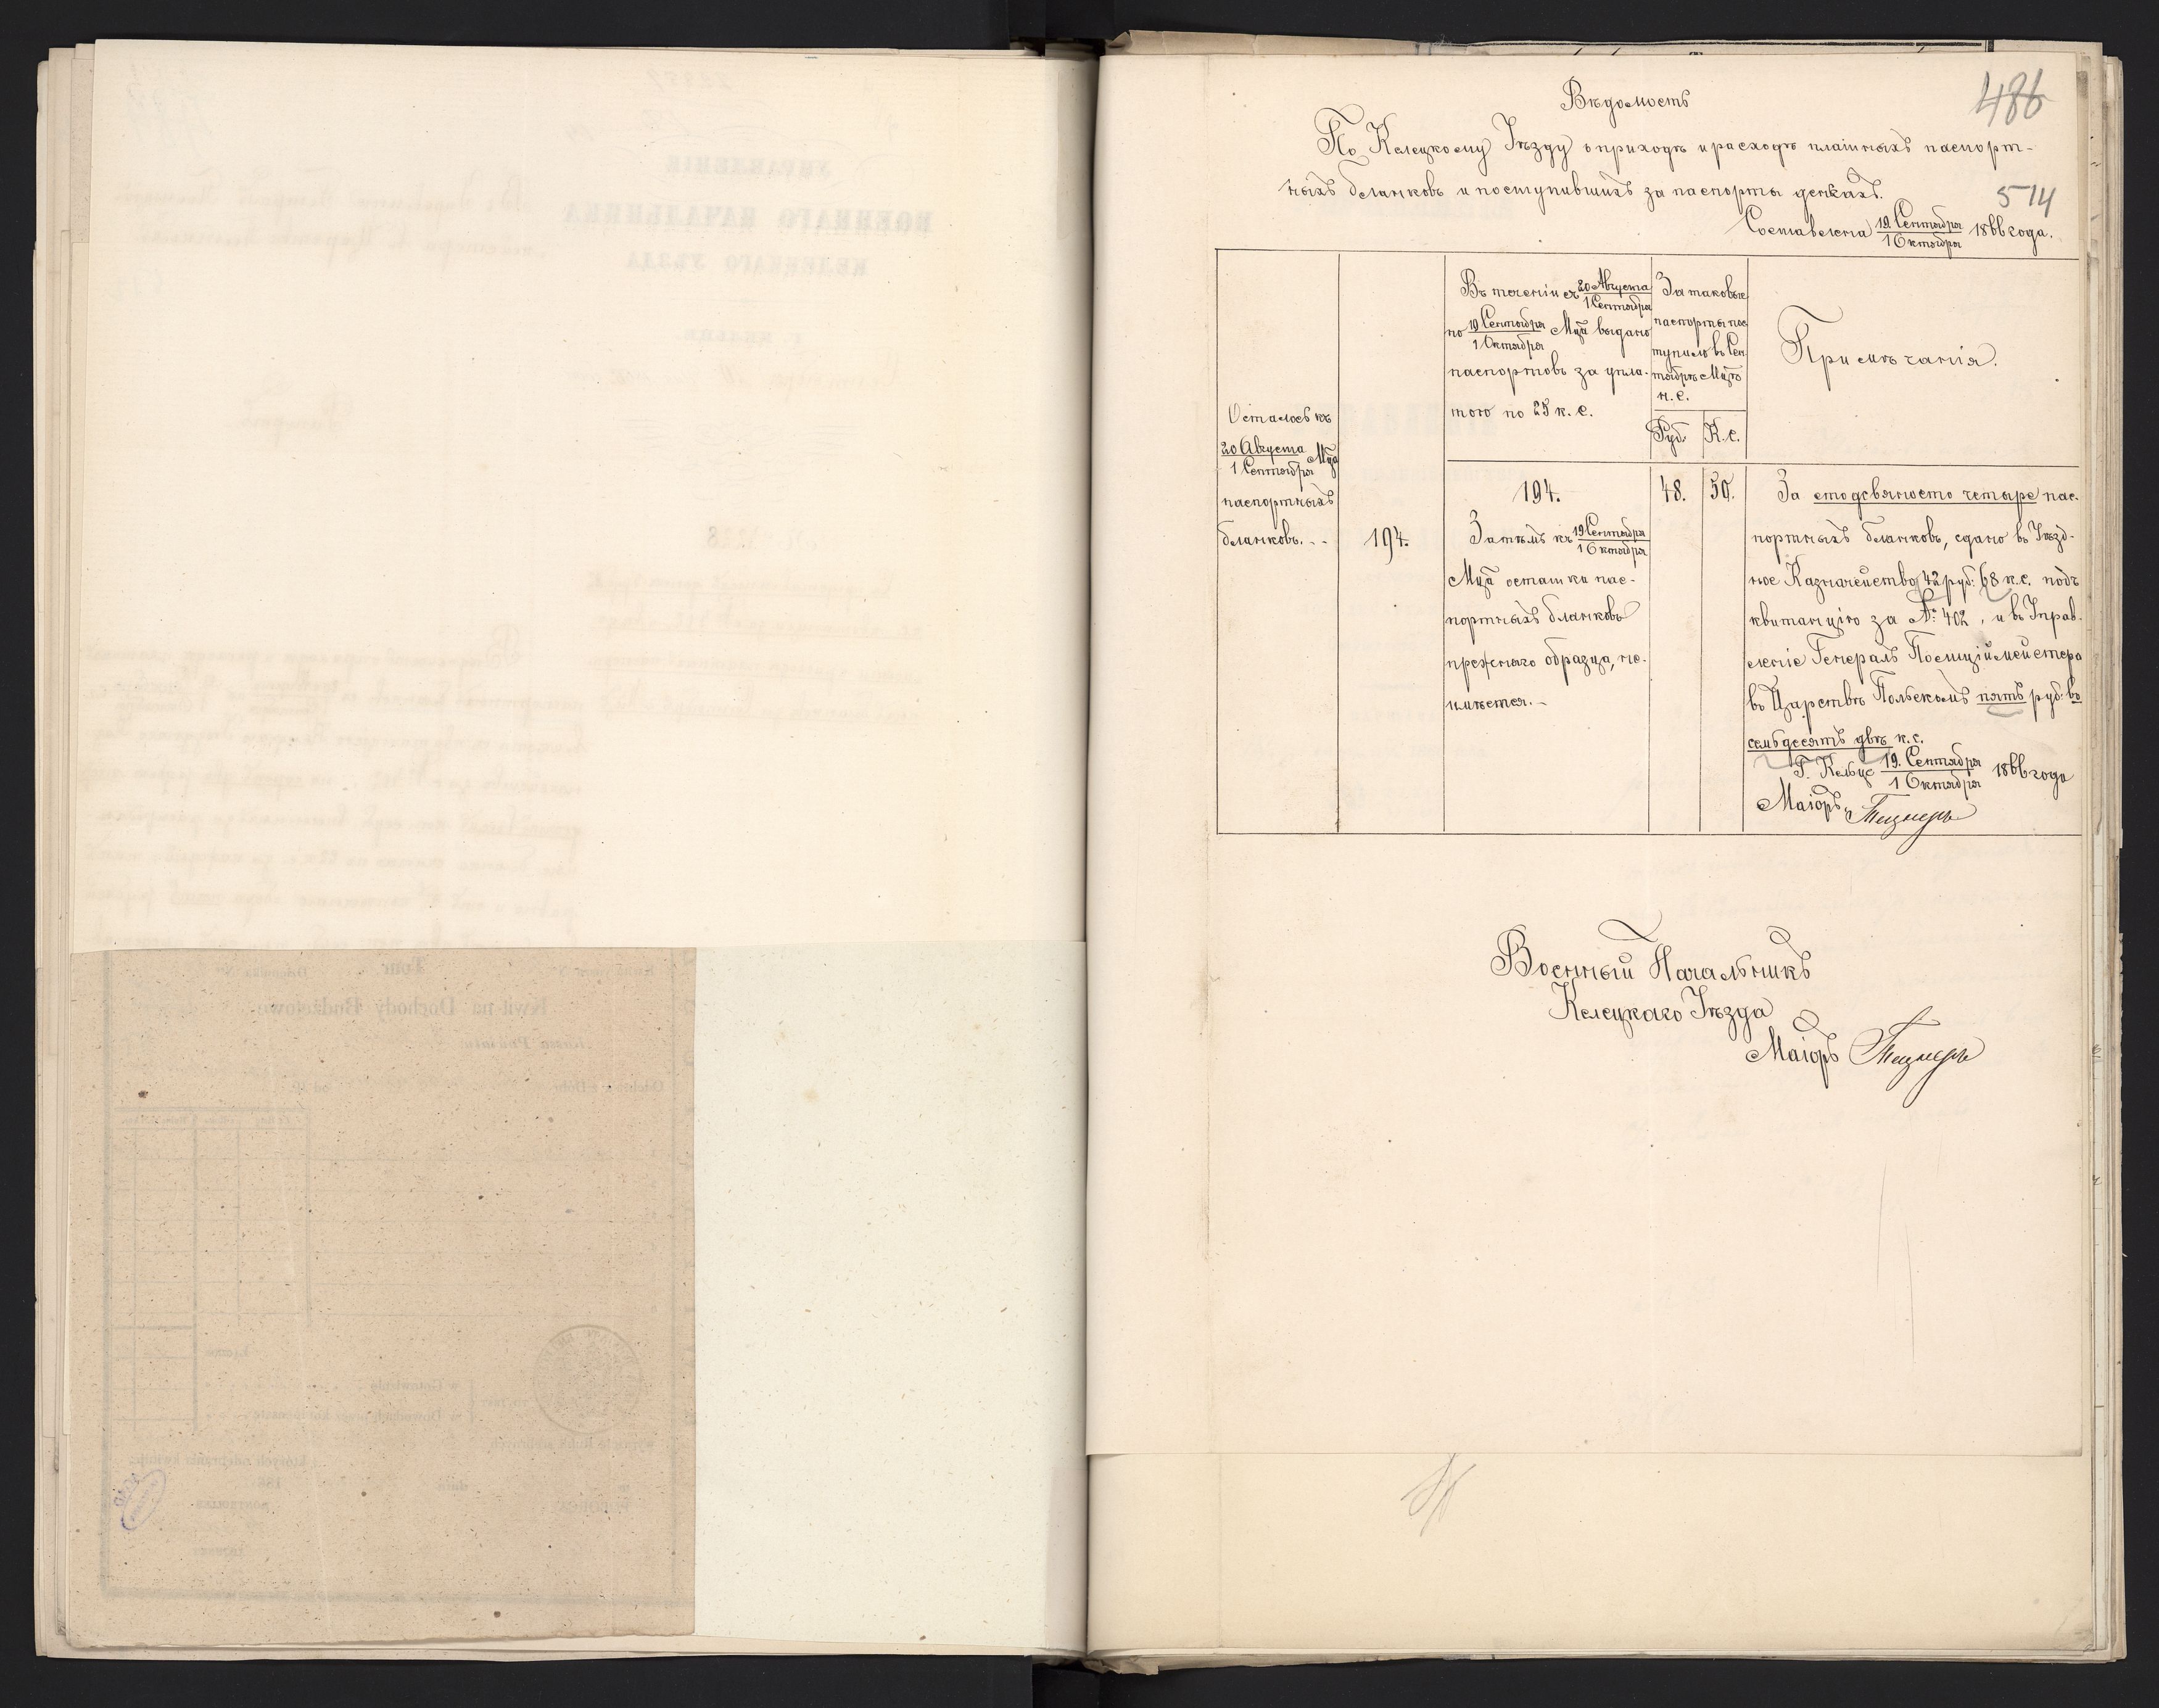 486
Вѣдомость
По Келецкому Уѣзду о приходѣ и расходѣ платныхъ паспорт-
ныхъ бланковъ и поступившихъ за паспорты деньгахъ.
574
Составлена 19 Сентября / 1 Октября 1866 года.
Осталось къ
20 Августа / 1 Сентября Мца
паспортныхъ
бланковъ. - -
194.
Въ теченіи съ 20 Августа / 1 Сентября
по 19 Сентября / 1 Октября Мца выдано
паспортовъ за упла-
тою по 25 к. с.
За таковые
паспорты пос-
тупило въ Сен-
тябрѣ Мцѣ
н. с.
Руб. К. с.
Примѣчанія.
194.
48. 50.
Затѣмъ къ 19 Сентября / 1 Октября
Мца остатки пас-
портныхъ бланковъ
прежняго образца, не-
имѣется. -
За стодевяносто четыре пас-
портныхъ бланковъ, сдано въ Уѣзд-
ное Казначейство 42 руб: 68 к. с. подъ
квитанцію за №: 402, и въ Управ-
леніе Генералъ Полиціймейстера
въ Царствѣ Польскомъ пять руб: во
семьдесятъ двѣ к. с.
Г. Кельце 19. Сентября / 1 Октября 1866 года
Маіоръ
Военный Начальникъ
Келецкаго Уѣзда
Маіоръ